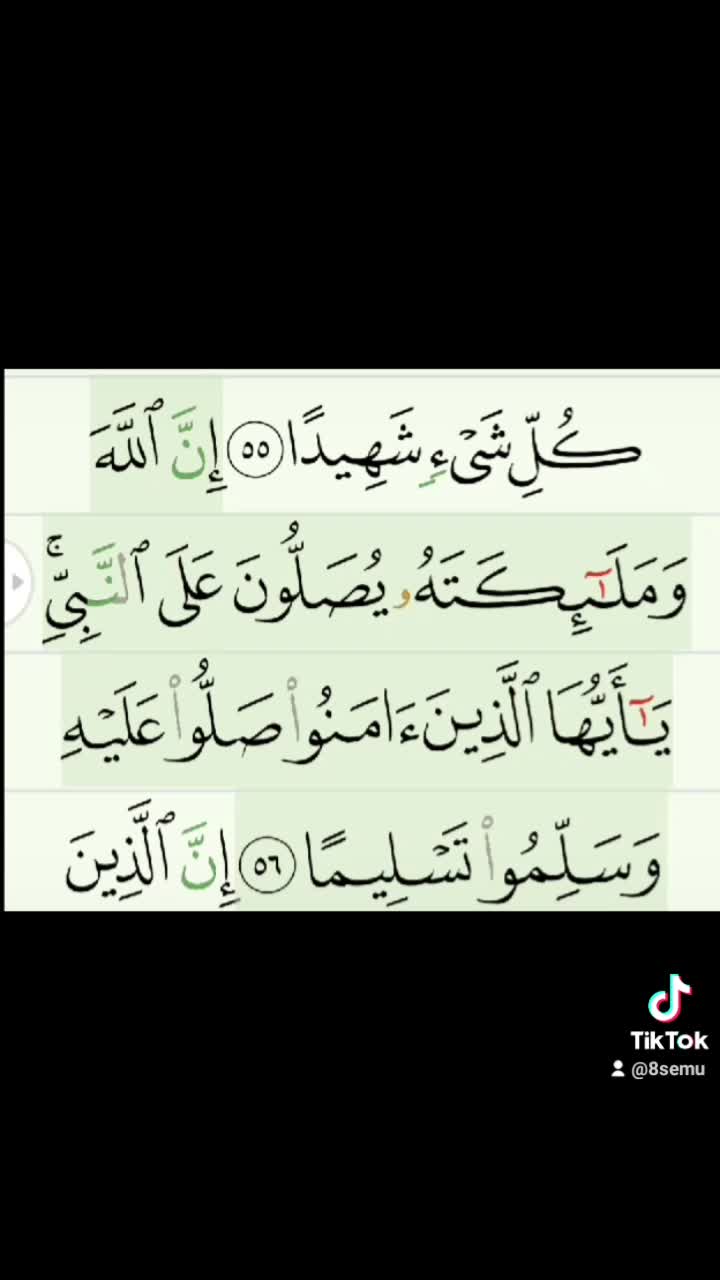 كُلِّ شَىْءٍ شَهِيدًا ٥٥ إِنَّ ٱللَّهَ
وَمَلَـٰٓئِكَتَهُۥ يُصَلُّونَ عَلَى ٱلنَّبِىِّ ۚ
يَـٰٓأَيُّهَا ٱلَّذِينَ ءَامَنُوا۟ صَلُّوا۟ عَلَيْهِ
وَسَلِّمُوا۟ تَسْلِيمًا ٥٦ إِنَّ ٱلَّذِينَ
TikTok
@8semu